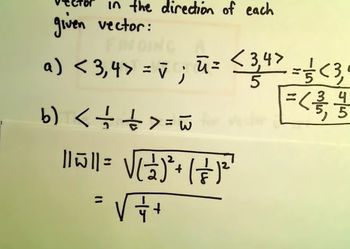 vector in the direction of each
given vector:
a) <3,4> = v̄ ; ū = <3,4>/5 = 1/5 <3,
= <3/5, 4/5
b) <1/2, 1/8> = w̄
||w̄|| = √((1/2)² + (1/8)²)
= √(1/4 +